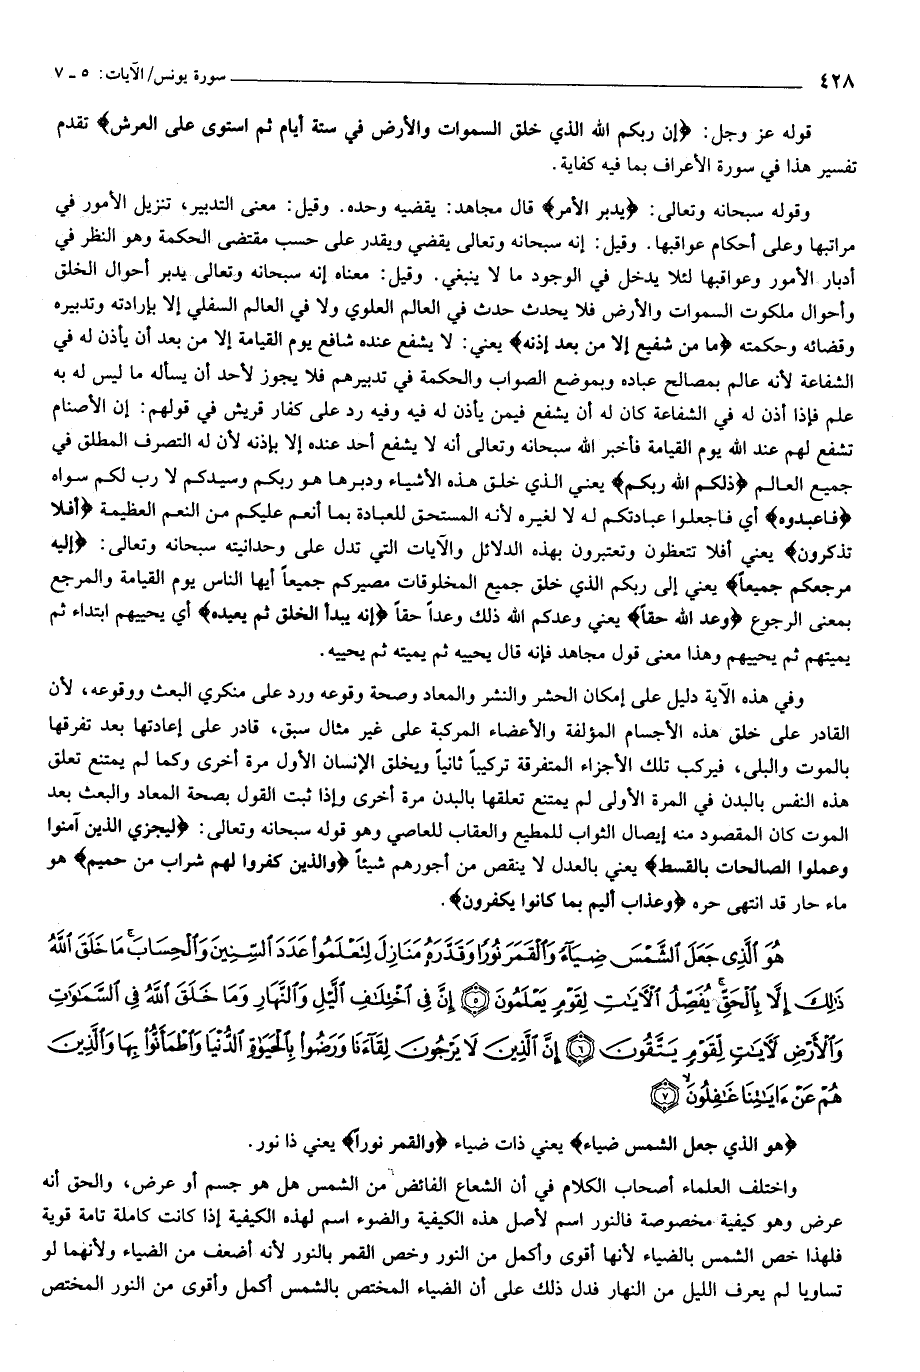 ٤٢٨ سورة يونس/ الآيات: ٥ ـ ٧
قوله عز وجل: ﴿إن ربكم الله الذي خلق السموات والأرض في ستة أيام ثم استوى على العرش﴾ تقدم
تفسير هذا في سورة الأعراف بما فيه كفاية.
وقوله سبحانه وتعالى: ﴿يدبر الأمر﴾ قال مجاهد: يقضيه وحده. وقيل: معنى التدبير، تنزيل الأمور في
مراتبها وعلى أحكام عواقبها. وقيل: إنه سبحانه وتعالى يقضي ويقدر على حسب مقتضى الحكمة وهو النظر في
أدبار الأمور وعواقبها لئلا يدخل في الوجود ما لا ينبغي. وقيل: معناه إنه سبحانه وتعالى يدبر أحوال الخلق
وأحوال ملكوت السموات والأرض فلا يحدث حدث في العالم العلوي ولا في العالم السفلي إلا بإرادته وتدبيره
وقضائه وحكمته ﴿ما من شفيع إلا من بعد إذنه﴾ يعني: لا يشفع عنده شافع يوم القيامة إلا من بعد أن يأذن له في
الشفاعة لأنه عالم بمصالح عباده وبموضع الصواب والحكمة في تدبيرهم فلا يجوز لأحد أن يسأله ما ليس له به
علم فإذا أذن له في الشفاعة كان له أن يشفع فيمن يأذن له فيه وفيه رد على كفار قريش في قولهم: إن الأصنام
تشفع لهم عند الله يوم القيامة فأخبر الله سبحانه وتعالى أنه لا يشفع أحد عنده إلا بإذنه لأن له التصرف المطلق في
جميع العالم ﴿ذلكم الله ربكم﴾ يعني الذي خلق هذه الأشياء ودبرها هو ربكم وسيدكم لا رب لكم سواه
﴿فاعبدوه﴾ أي فاجعلوا عبادتكم له لا لغيره لأنه المستحق للعبادة بما أنعم عليكم من النعم العظيمة ﴿أفلا
تذكرون﴾ يعني أفلا تتعظون وتعتبرون بهذه الدلائل والآيات التي تدل على وحدانيته سبحانه وتعالى: ﴿إليه
مرجعكم جميعاً﴾ يعني إلى ربكم الذي خلق جميع المخلوقات مصيركم جميعاً أيها الناس يوم القيامة والمرجع
بمعنى الرجوع ﴿وعد الله حقاً﴾ يعني وعدكم الله ذلك وعداً حقاً ﴿إنه يبدأ الخلق ثم يعيده﴾ أي يحييهم ابتداء ثم
يميتهم ثم يحييهم وهذا معنى قول مجاهد فإنه قال يحييه ثم يميته ثم يحييه.
وفي هذه الآية دليل على إمكان الحشر والنشر والمعاد وصحة وقوعه ورد على منكري البعث ووقوعه، لأن
القادر على خلق هذه الأجسام المؤلفة والأعضاء المركبة على غير مثال سبق، قادر على إعادتها بعد تفرقها
بالموت والبلى، فيركب تلك الأجزاء المتفرقة تركيباً ثانياً ويخلق الإنسان الأول مرة أخرى وكما لم يمتنع تعلق
هذه النفس بالبدن في المرة الأولى لم يمتنع تعلقها بالبدن مرة أخرى وإذا ثبت القول بصحة المعاد والبعث بعد
الموت كان المقصود منه إيصال الثواب للمطيع والعقاب للعاصي وهو قوله سبحانه وتعالى: ﴿ليجزي الذين آمنوا
وعملوا الصالحات بالقسط﴾ يعني بالعدل لا ينقص من أجورهم شيئاً ﴿والذين كفروا لهم شراب من حميم﴾ هو
ماء حار قد انتهى حره ﴿وعذاب أليم بما كانوا يكفرون﴾.
هُوَ ٱلَّذِى جَعَلَ ٱلشَّمْسَ ضِيَآءً وَٱلْقَمَرَ نُورًا وَقَدَّرَهُۥ مَنَازِلَ لِتَعْلَمُوا۟ عَدَدَ ٱلسِّنِينَ وَٱلْحِسَابَ ۚ مَا خَلَقَ ٱللَّهُ
ذَٰلِكَ إِلَّا بِٱلْحَقِّ ۚ يُفَصِّلُ ٱلْآيَـٰتِ لِقَوْمٍ يَعْلَمُونَ ﴿٥﴾ إِنَّ فِى ٱخْتِلَـٰفِ ٱلَّيْلِ وَٱلنَّهَارِ وَمَا خَلَقَ ٱللَّهُ فِى ٱلسَّمَـٰوَٰتِ
وَٱلْأَرْضِ لَآيَـٰتٍ لِقَوْمٍ يَتَّقُونَ ﴿٦﴾ إِنَّ ٱلَّذِينَ لَا يَرْجُونَ لِقَآءَنَا وَرَضُوا۟ بِٱلْحَيَوٰةِ ٱلدُّنْيَا وَٱطْمَأَنُّوا۟ بِهَا وَٱلَّذِينَ
هُمْ عَنْ ءَايَـٰتِنَا غَـٰفِلُونَ ۙ ﴿٧﴾
﴿هو الذي جعل الشمس ضياء﴾ يعني ذات ضياء ﴿والقمر نوراً﴾ يعني ذا نور.
واختلف العلماء أصحاب الكلام في أن الشعاع الفائض من الشمس هل هو جسم أو عرض، والحق أنه
عرض وهو كيفية مخصوصة فالنور اسم لأصل هذه الكيفية والضوء اسم لهذه الكيفية إذا كانت كاملة تامة قوية
فلهذا خص الشمس بالضياء لأنها أقوى وأكمل من النور وخص القمر بالنور لأنه أضعف من الضياء ولأنهما لو
تساويا لم يعرف الليل من النهار فدل ذلك على أن الضياء المختص بالشمس أكمل وأقوى من النور المختص